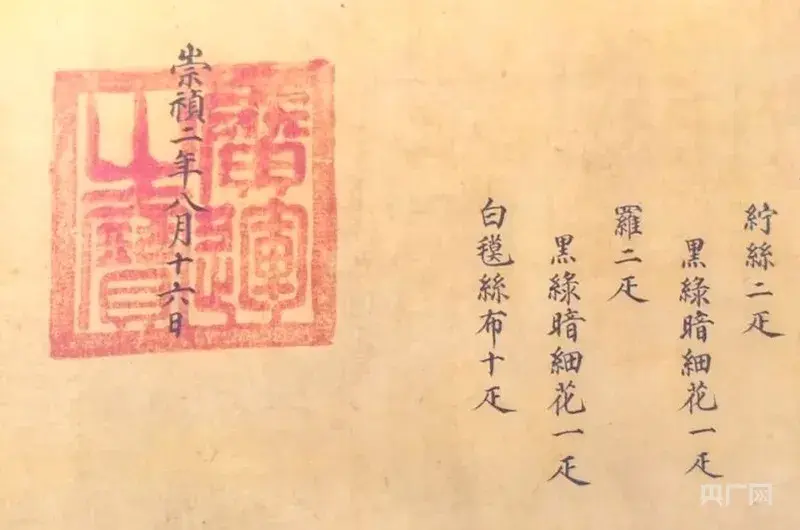 紵絲二疋
黑綠暗細花一疋
羅二疋
黑綠暗細花一疋
白氁絲布十疋
崇禎二年八月十六日
廣運
之寶
央广网